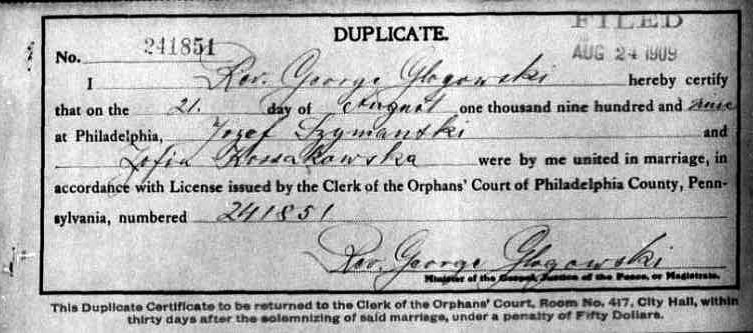 DUPLICATE.
FILED
AUG 24 1909
No. 241851
I Rev. George Glogowski hereby certify
that on the 21. day of August one thousand nine hundred and nine
at Philadelphia, Jozef Szymanski and
Zofia Kossakowska were by me united in marriage, in
accordance with License issued by the Clerk of the Orphans' Court of Philadelphia County, Penn-
sylvania, numbered 241851
Rev. George Glogowski
Minister of the Gospel, Justice of the Peace, or Magistrate.
This Duplicate Certificate to be returned to the Clerk of the Orphans' Court, Room No. 417, City Hall, within
thirty days after the solemnizing of said marriage, under a penalty of Fifty Dollars.